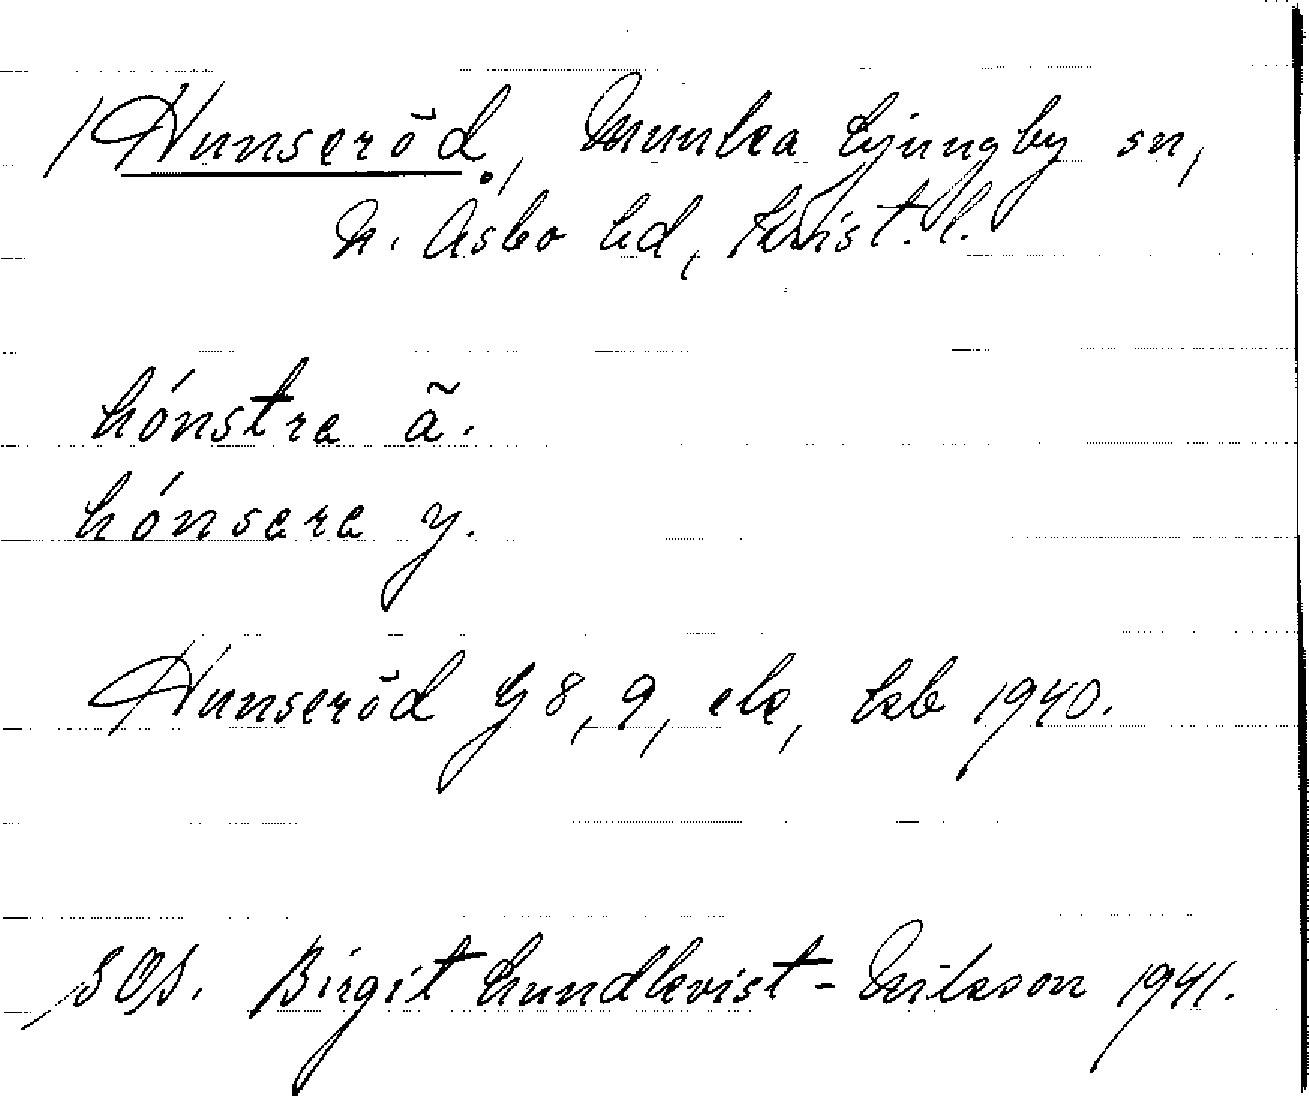 Hunseröd, Munka Ljungby sn,
N. Åsbo hd, Krist. l.
hónstra ã.
hónsara y.
Hunseröd 8, 9, ek, 1940.
SOS. Birgit Lundkvist-Nilsson 1941.